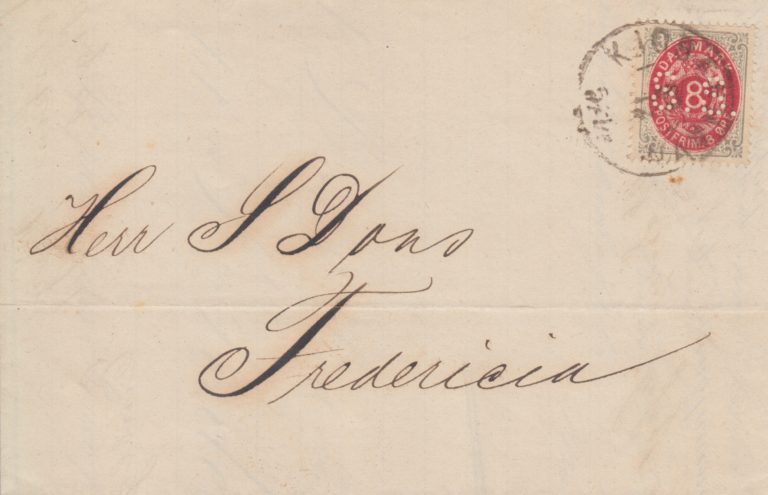 KJØB
DANMARK
8
POSTFRIM. 8 ØRE
Herr S Dons
Fredericia